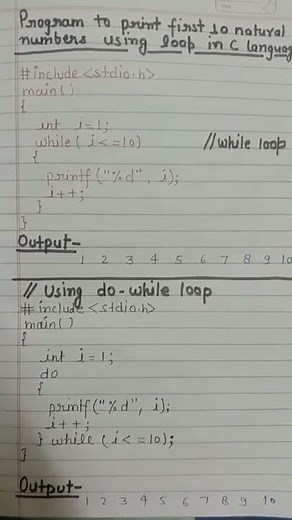 Program to print first 10 natural
numbers using loop in C language
#include <stdio.h>
main()
{
int i=1;
while( i<=10) //while loop
{
printf("%d", i);
i++;
}
}
Output-
1 2 3 4 5 6 7 8 9 10
// Using do-while loop
#include <stdio.h>
main()
{
int i=1;
do
{
printf("%d", i);
i++;
} while (i<=10);
}
Output-
1 2 3 4 5 6 7 8 9 10